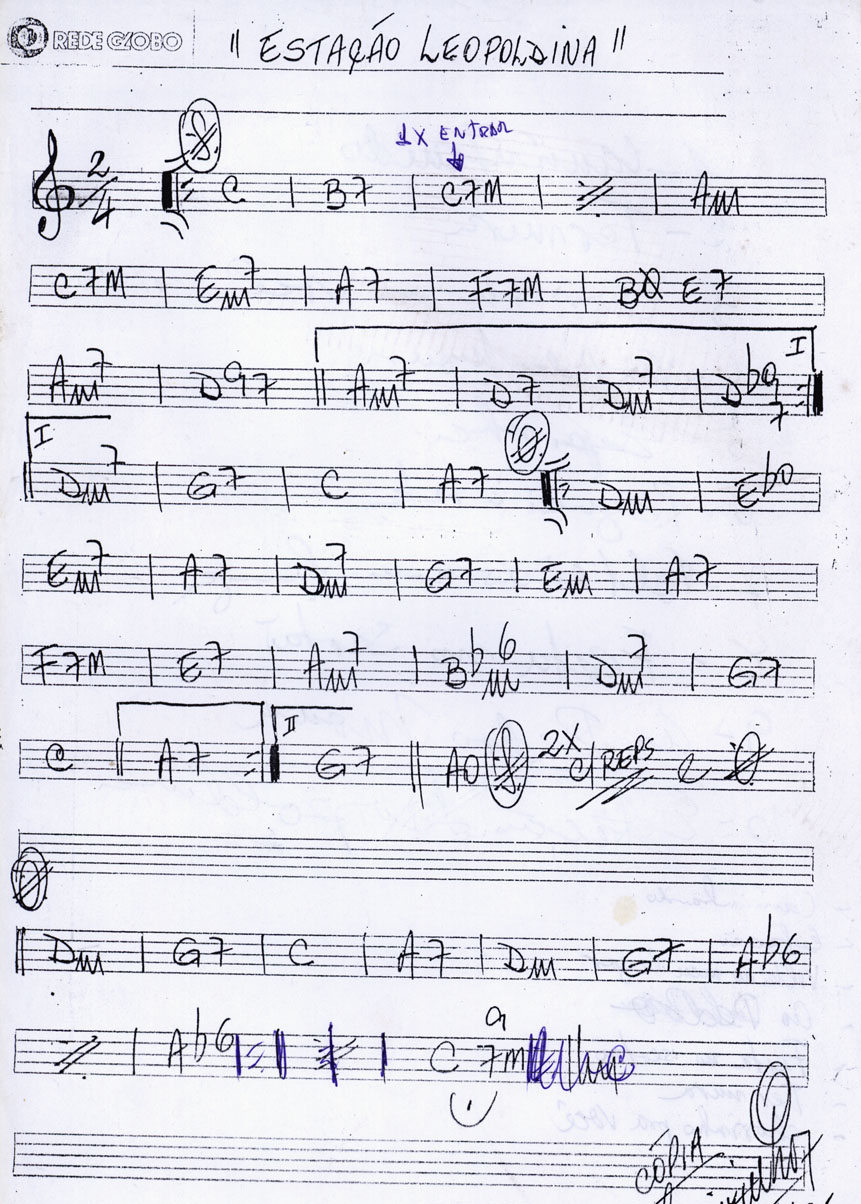 REDE GLOBO
"ESTAÇÃO LEOPOLDINA"
1X ENTRAR
2/4 C | B7 | C7M | % | Am
C7M | Em7 | A7 | F7M | BØ E7
Am7 | D97 || Am7 | D7 | Dm7 | Db97 I
I
Dm7 | G7 | C | A7 | Dm | Ebo
Em7 | A7 | Dm7 | G7 | Em | A7
F7M | E7 | Am7 | Bbm6 | Dm7 | G7
II
C || A7 | G7 || AO 2X C/REPS C
Dm | G7 | C | A7 | Dm | G7 | Ab6
% | Ab6 | C 7M9
CÓPIA